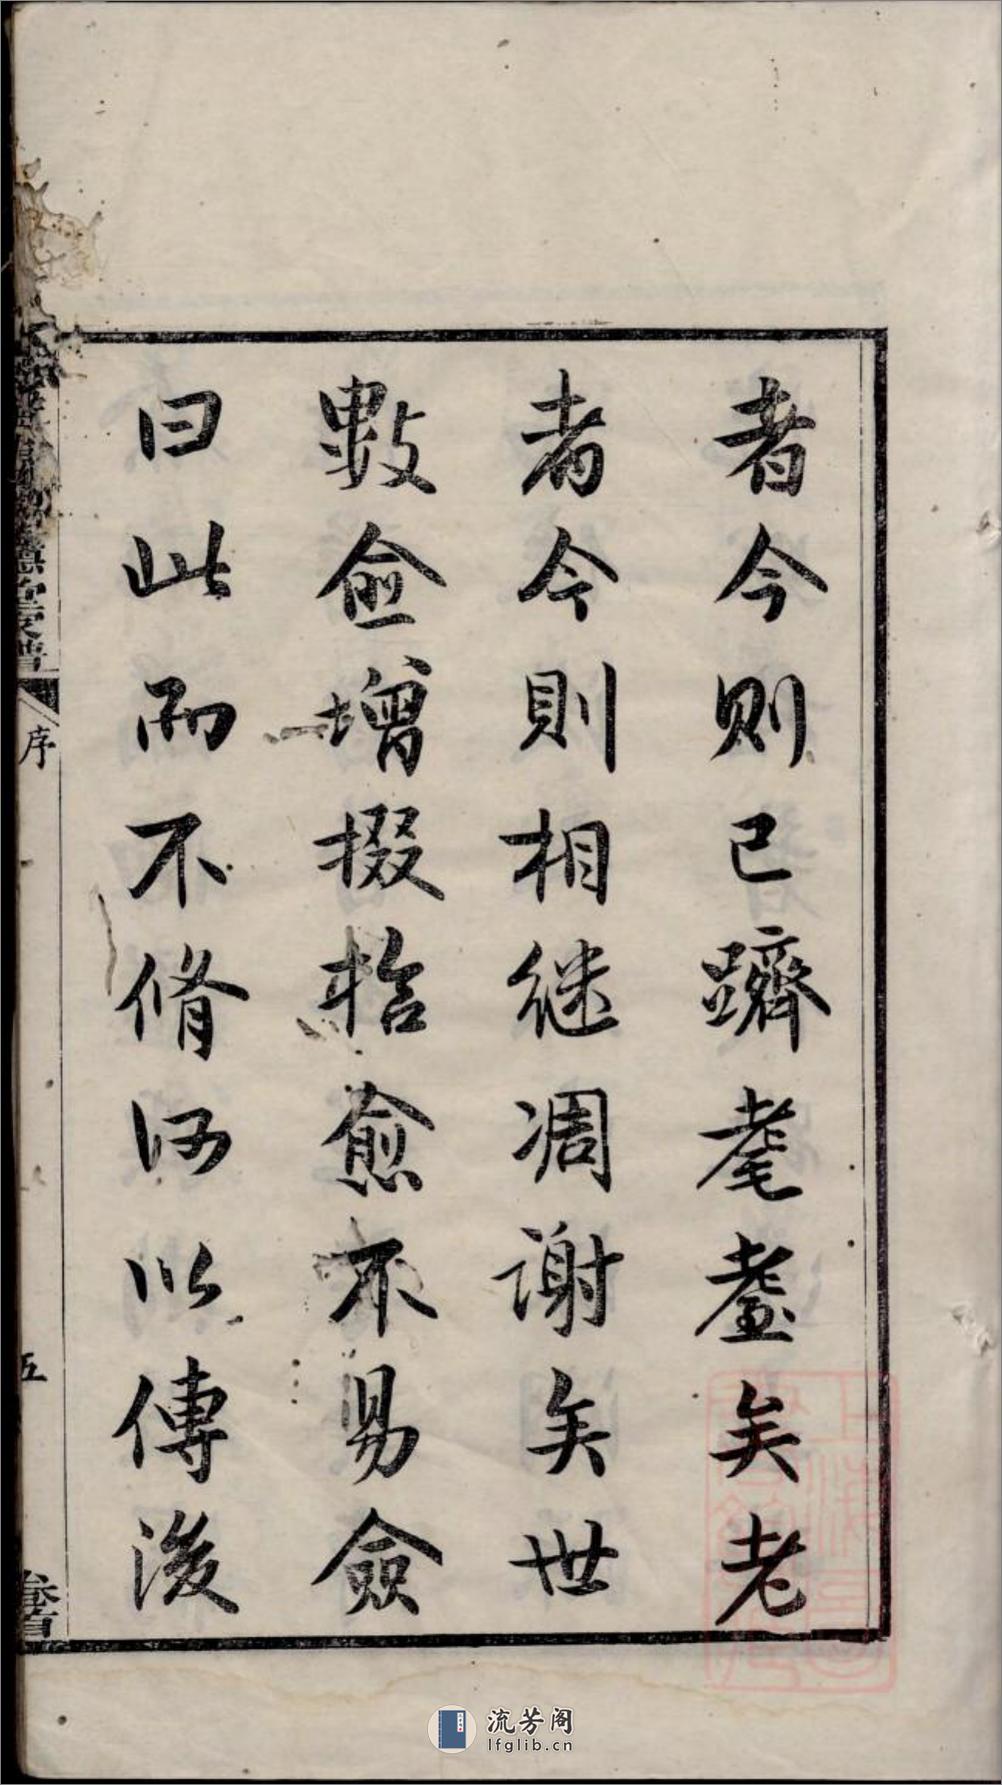 者今則已躋耄耋矣老
者今則相继凋谢矣世
數僉增掇拾愈不易僉
曰此而不脩何以傳後
序
五
卷首
流芳阁
lfglib.cn